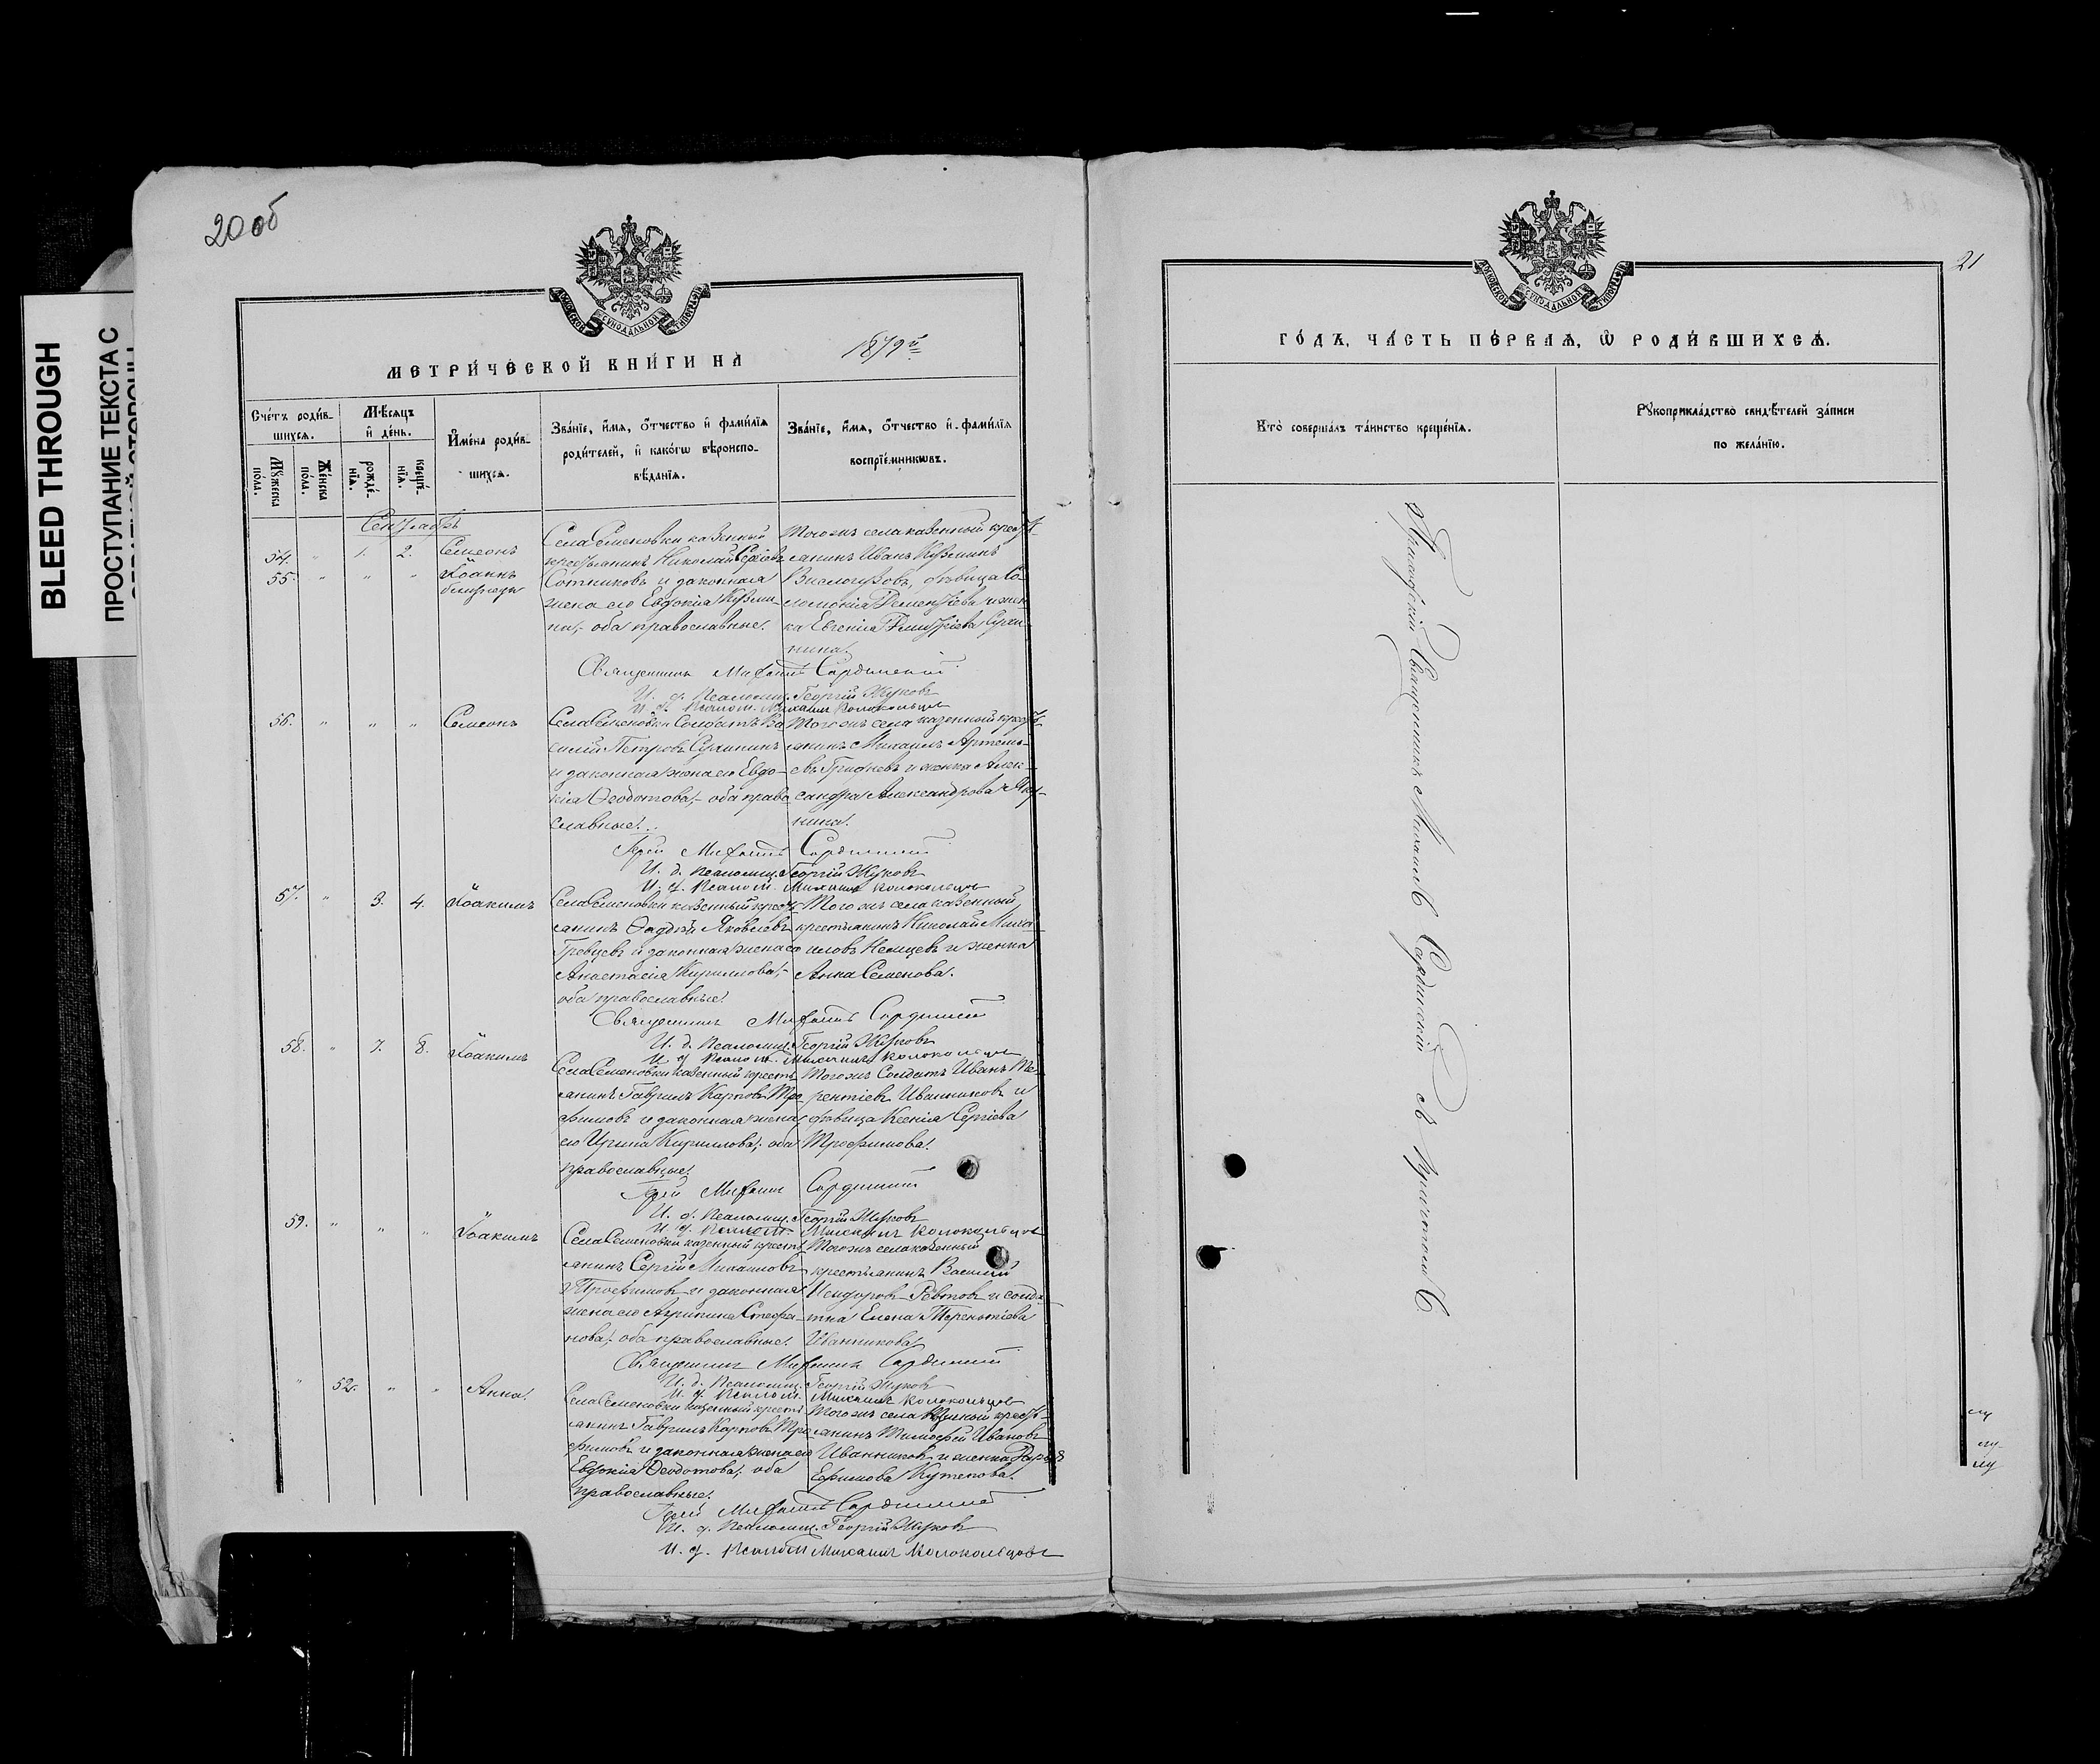 BLEED THROUGH
ПРОСТУПАНИЕ ТЕКСТА С
20 об
МОСКОВСКОЙ СѴНОДАЛЬНОЙ ТИПОГРАФІИ
МЕТРИ́ЧЕСКОЙ КНИ́ГИ НА 1879й
Сче́тъ роди́в-
шихсѧ.
Мꙋ́жеска
по́ла.
Же́нска
по́ла.
Мѣ́сѧцъ
и҆ де́нь.
рожде́-
нїѧ.
креще́-
нїѧ.
И҆мена̀ роди́в-
шихсѧ.
Зва́нїе, и҆́мѧ, ѻ҆́тчество и҆ фами́лїѧ
роди́телей, и҆ како́гѡ вѣроиспо-
вѣ́данїѧ.
Зва́нїе, и҆́мѧ, ѻ҆́тчество и҆ фами́лїѧ
воспрїе́мникѡвъ.
Сентябрь
54. " 1. 2. Симеонъ
55. " " " Іоаннъ
близнецы
Села Семеновки казенный
крестьянинъ Николай
Сотниковъ и законная
жена его Евдокія Кузми-
на, оба православные.
Того же села казенный кресть-
янинъ Иванъ Кузминъ
Вислогузовъ, дѣвица Со-
ломонія Дементіева и жен-
ка Евгенія Димитріева
Священникъ Михаилъ Сардинскій
И. д. Псаломщ. Георгій Жуковъ
И. д. Псалом. Михаилъ Колокольцовъ
56. " " " Симеонъ
Села Семеновки Солдатъ Ва-
силій Петровъ Сухининъ
и законная жена его Евдо-
кія Ѳеодотова, оба право
славные.
Того же села казенный кресть-
янинъ Михаилъ Артемь-
евъ Гридневъ и женка Алек-
сандра Александрова
Іерей Михаилъ Сардинскій
И. д. Псаломщ. Георгій Жуковъ
И. д. Псалом. Михаилъ Колокольцовъ
57. " 3. 4. Іоакимъ
Села Семеновки казенный крест
янинъ Ѳаддей Яковлевъ
Гревцевъ и законная жена его
Анастасія Кириллова,
оба православные.
Того же села казенный
крестьянинъ Николай Миха-
иловъ Немцевъ и женка
Анна Семенова.
Священникъ Михаилъ Сардинскій
И. д. Псаломщ. Георгій Жуковъ
И. д. Псалом. Михаилъ Колокольцовъ
58. " 7. 8. Іоакимъ
Села Семеновки казенный кресть
янинъ Гавріилъ Карповъ Тро
фимовъ и законная жена
его Ирина Кириллова, оба
православные.
Того же Солдатъ Иванъ Те-
рентіевъ Иванниковъ и
дѣвица Ксенія Сергіева
Трофимова.
Іерей Михаилъ Сардинскій
И. д. Псаломщ. Георгій Жуковъ
И. д. Псалом. Михаилъ Колокольцовъ
59. " " " Іоакимъ
Села Семеновки казенный кресть
янинъ Сергій Михаиловъ
Трофимовъ и законная
жена его Агрипина Стефа-
нова, оба православные.
Того же села казенный
крестьянинъ Василій
Исидоровъ Ревтовъ и солда-
тка Елена Терентіева
Иванникова.
Священникъ Михаилъ Сардинскій
И. д. Псаломщ. Георгій Жуковъ
И. д. Псалом. Михаилъ Колокольцовъ
" 52. " " Анна.
Села Семеновки казенный кресть
янинъ Гавріилъ Карповъ Тро
фимовъ и законная жена его
Евдокія Ѳеодотова, оба
православные.
Того же села казенный кресть-
янинъ Тимофей Ивановъ
Иванниковъ и женка Дарья
Ефимова Кутепова.
Іерей Михаилъ Сардинскій
И. д. Псаломщ. Георгій Жуковъ
И. д. Псалом Михаилъ Колокольцовъ
21
МОСКОВСКОЙ СѴНОДАЛЬНОЙ ТИПОГРАФІИ
ГО́ДЪ, ЧА́СТЬ ПЕ́РВАѦ, Ѽ РОДИ́ВШИХСѦ.
Кто̀ соверша́лъ та́инство креще́нїѧ.
Рꙋкоприкла́дство свидѣ́телей за́писи
по жела́нїю.
Приходскій Священникъ Михаилъ Сардинскій съ причтомъ